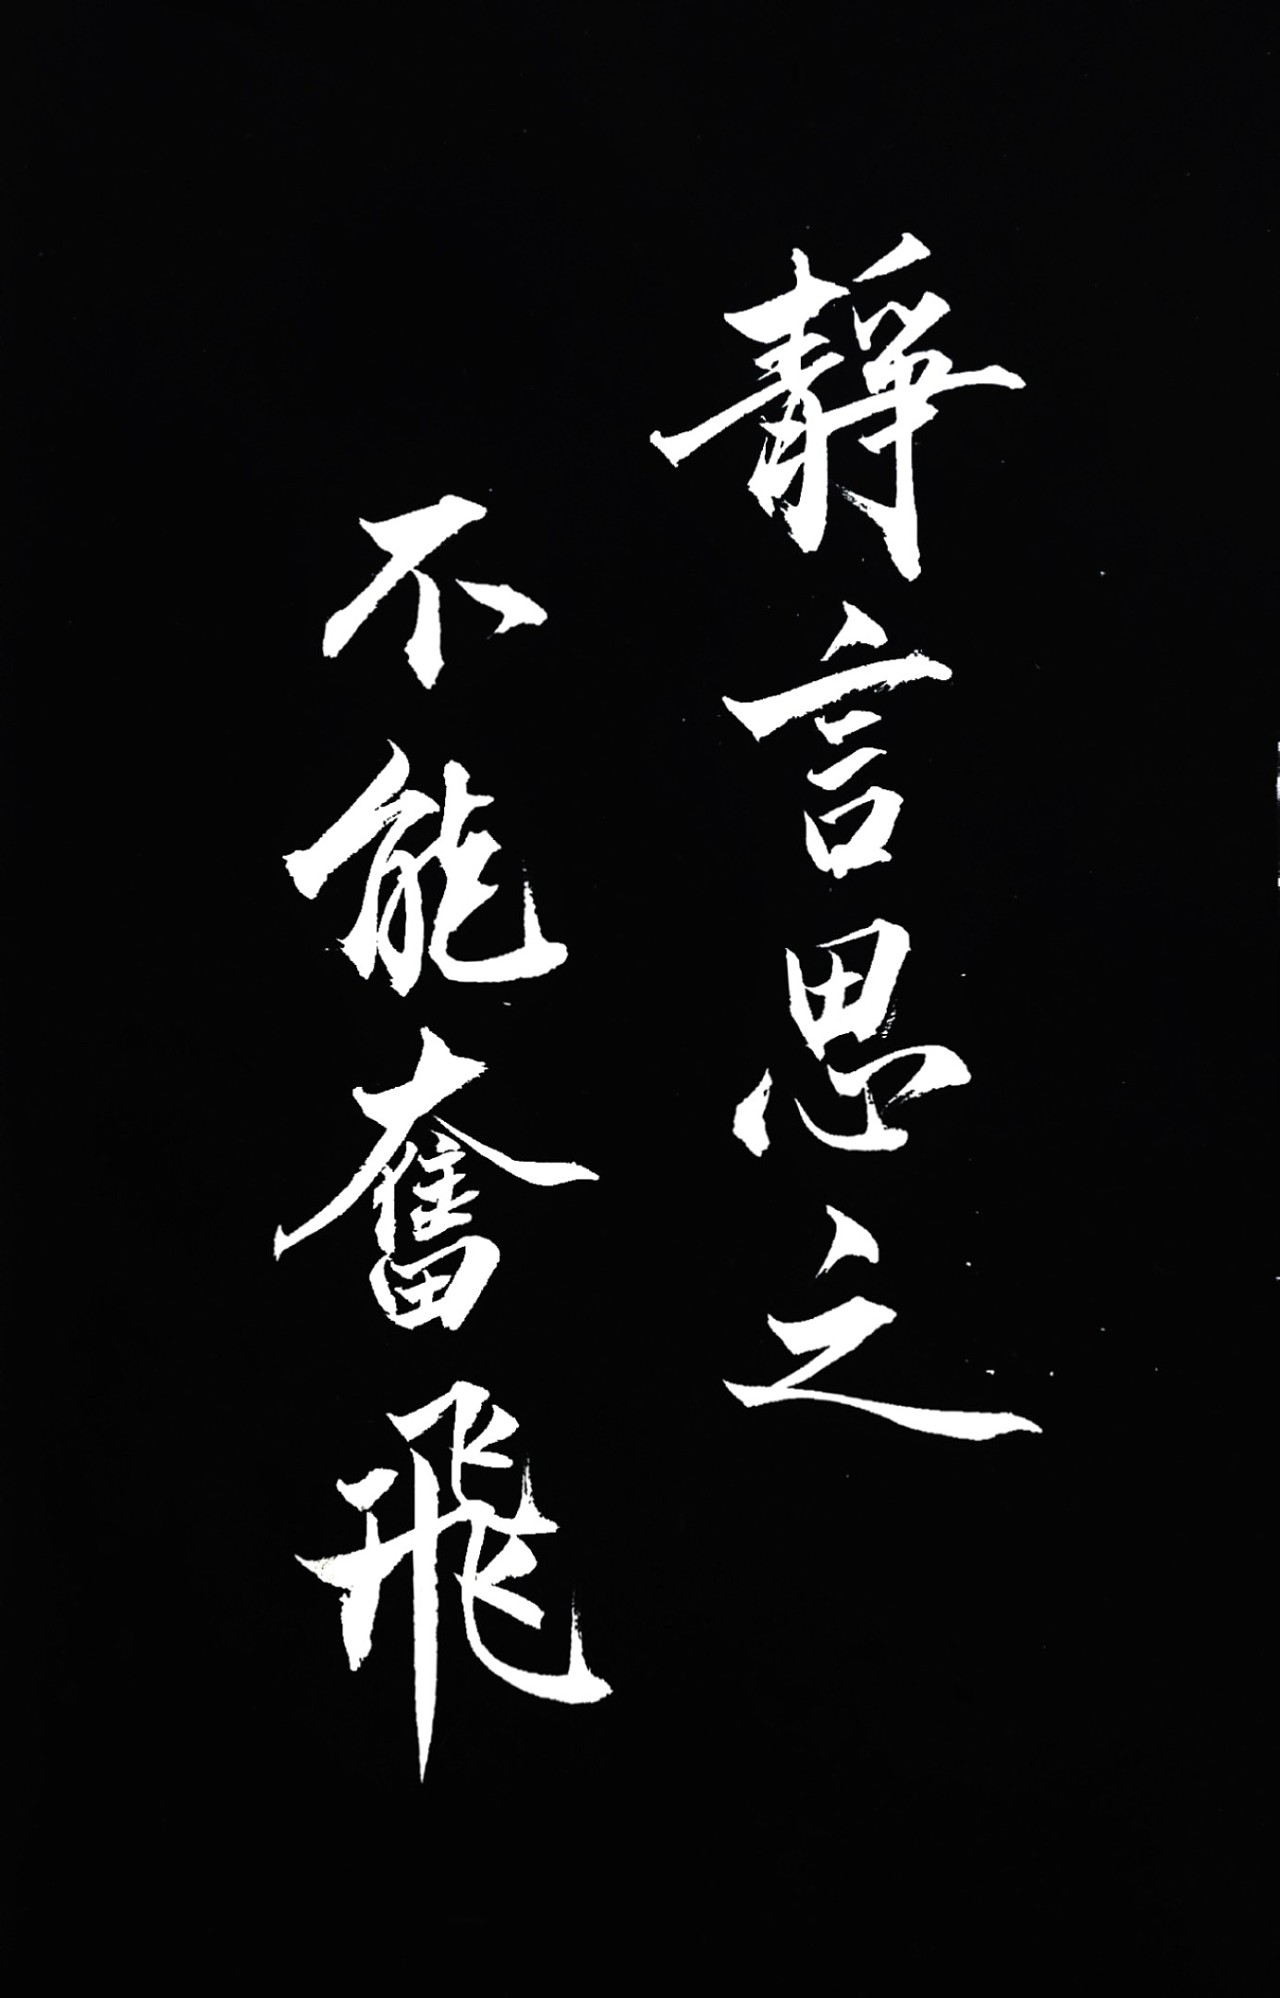 靜言思之
不能奮飛